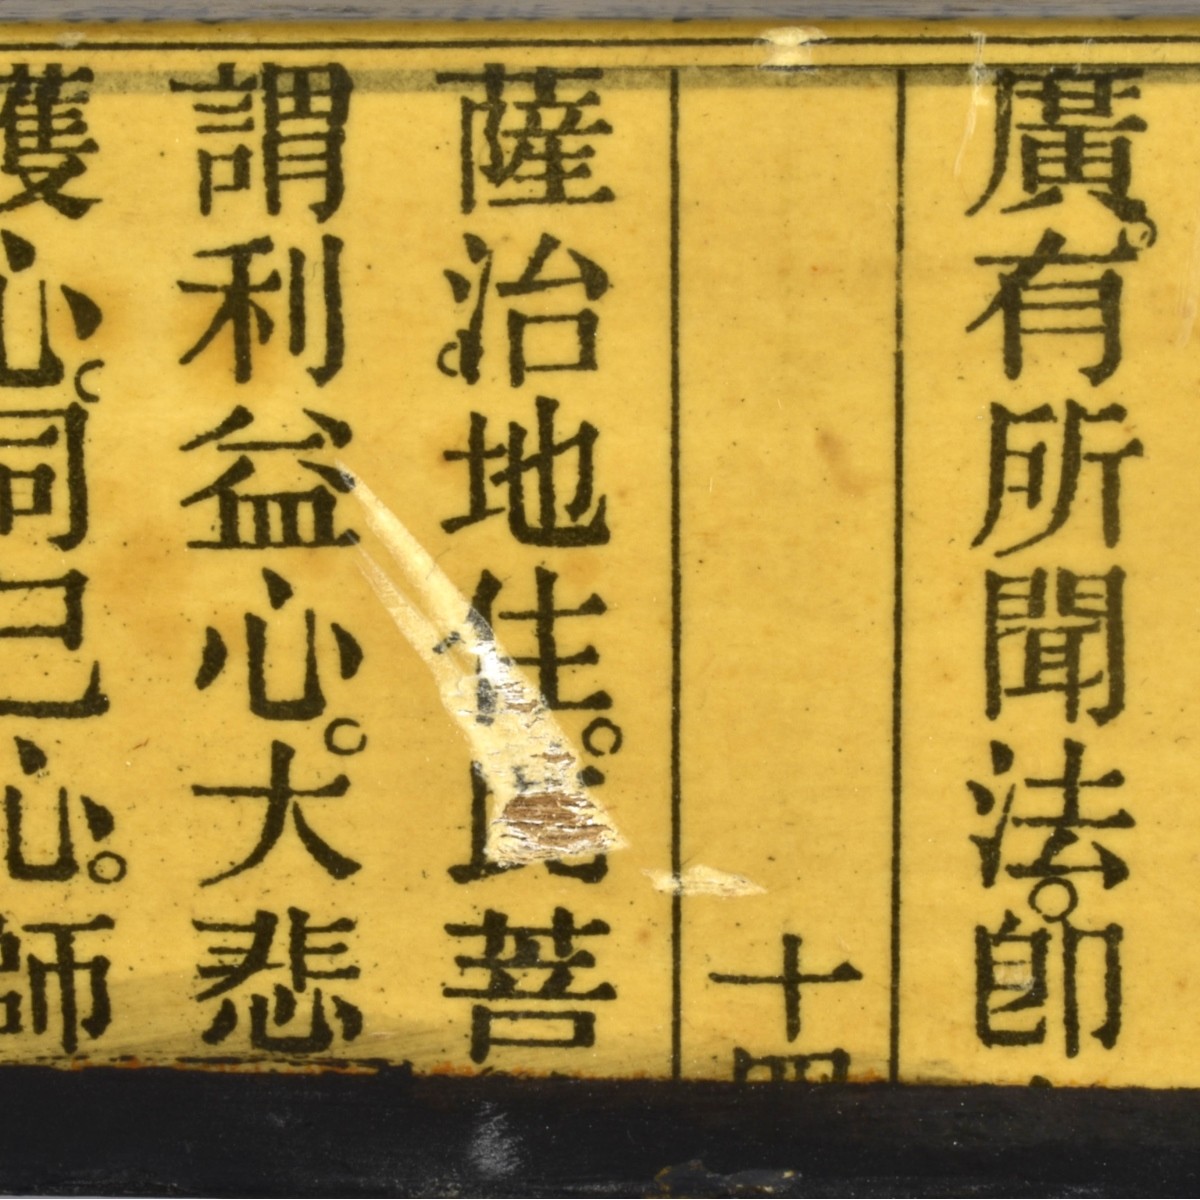 廣。有所聞法。卽
十四
薩治。地住。菩
謂利益心。大悲
護心。同己心。師